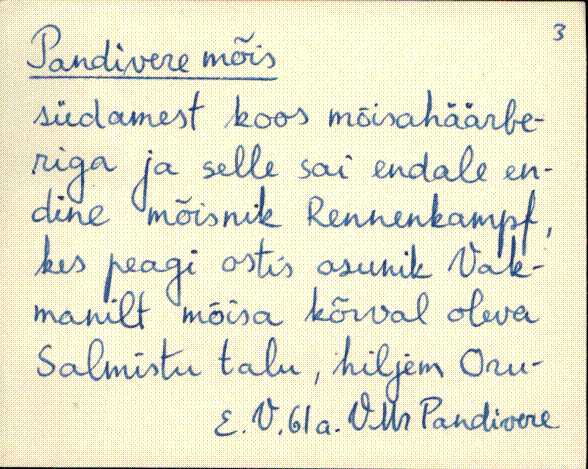 3
Pandivere mõis
südamest koos mõisahäärbe-
riga ja selle sai endale en-
dine mõisnik Rennenkampf,
kes peagi ostis asunik Vak-
manilt mõisa kõrval oleva
Salmistu talu, hiljem Oru-
E. V. 61a. VMr Pandivere